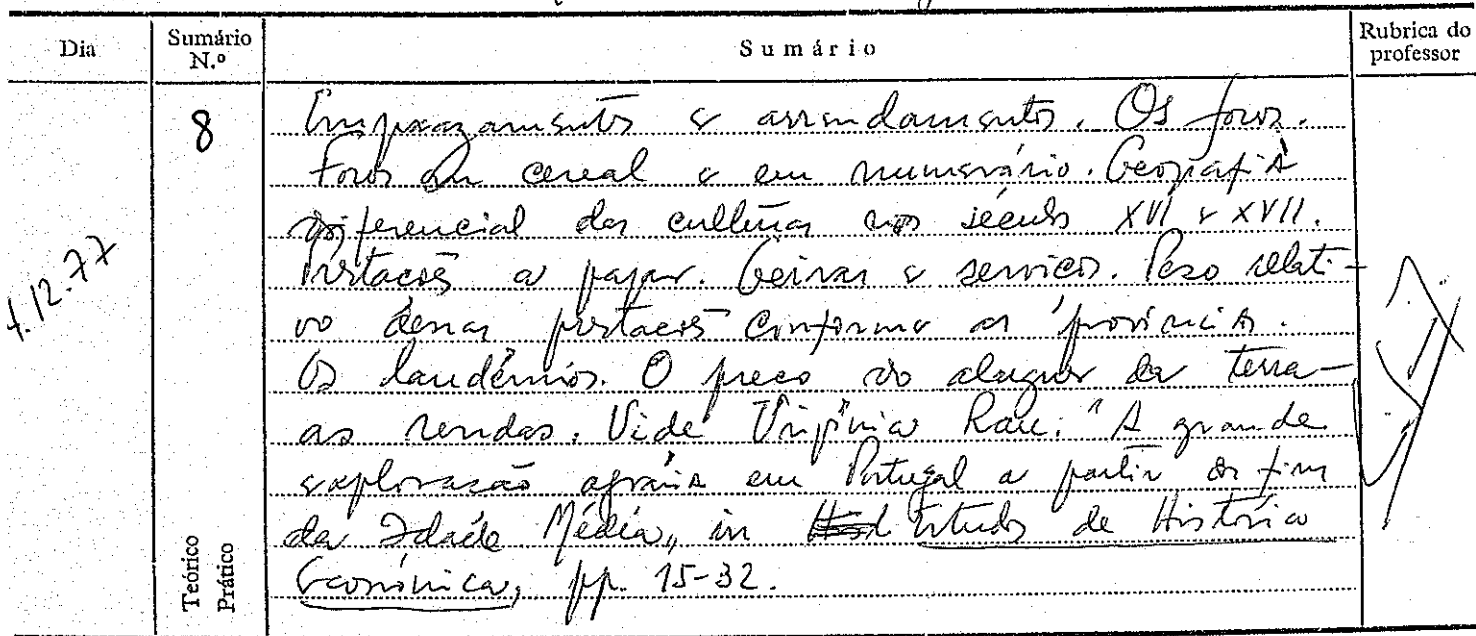 Dia
Sumário N.º
Sumário
Rubrica do professor
4.12.77
8
Teórico
Prático
Emprazamentos e arrendamentos. Os foros.
Foros em cereal e em numerário. Geografia
diferencial das culturas nos séculos XVI e XVII.
Prestações a pagar. Geiras e serviços. Peso relati-
vo dessas prestações conforme as províncias.
Os laudémios. O preço do aluguer da terra -
as rendas. Vide Virgínia Rau: "A grande
exploração agrária em Portugal a partir do fim
da Idade Média", in Estudos de História
Económica, pp. 15-32.